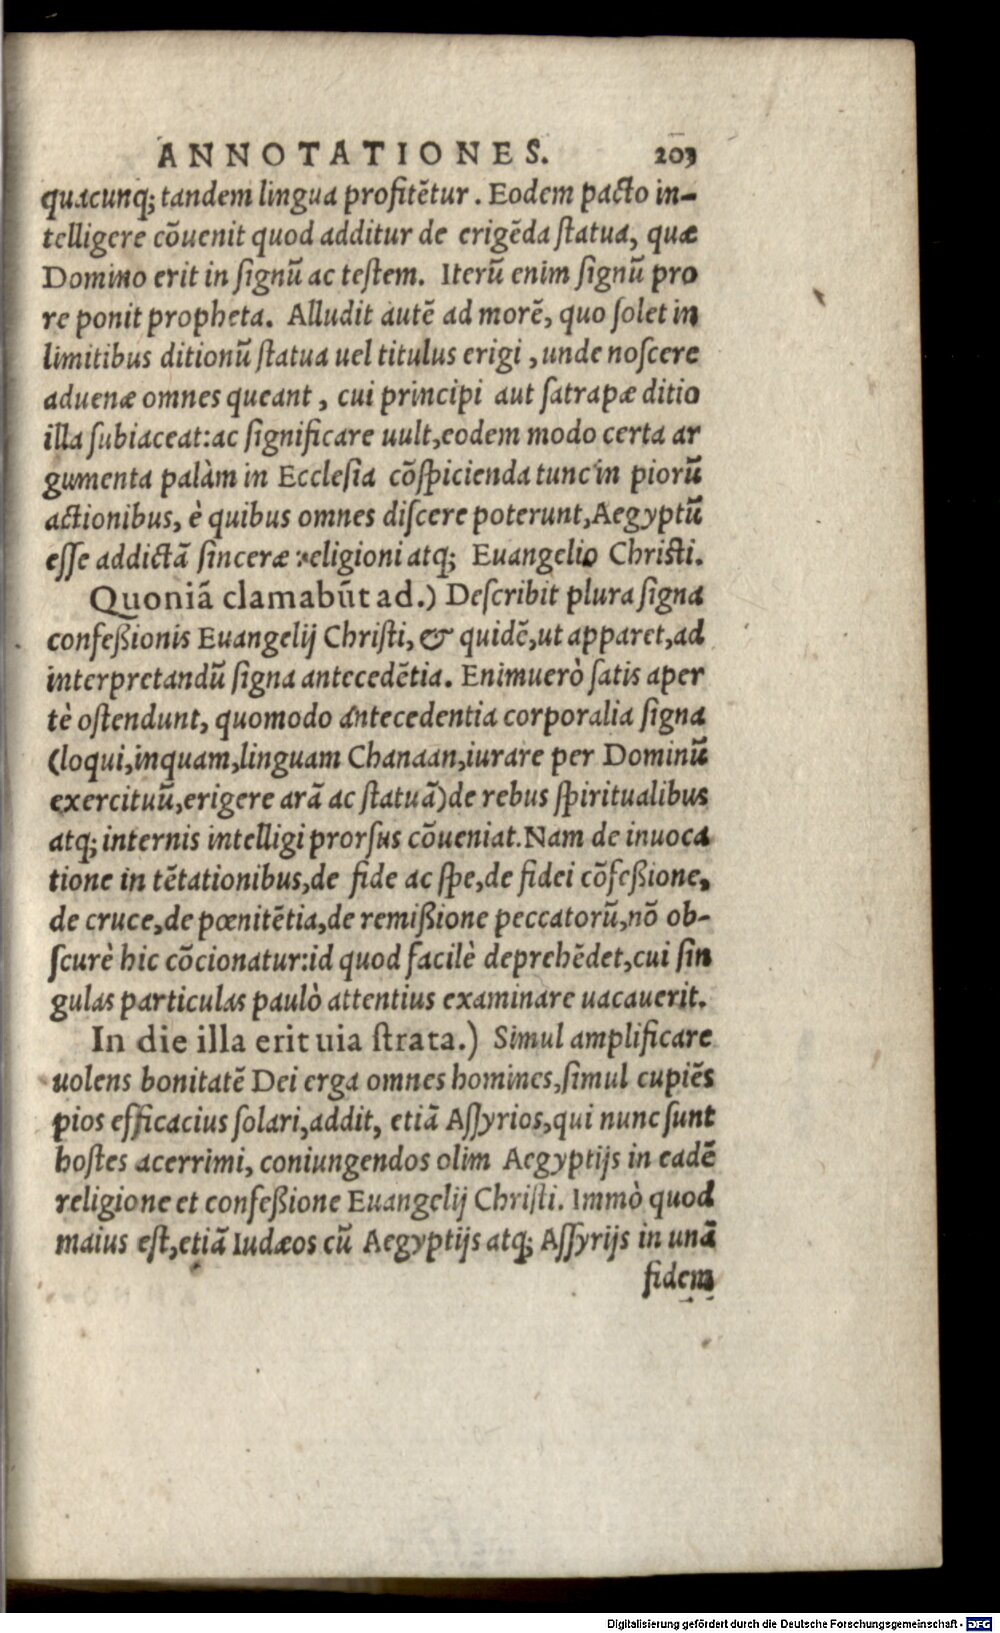 ANNOTATIONES. 203
quacunq; tandem lingua profitẽtur. Eodem pacto in-
telligere cõuenit quod additur de erigẽda ſtatua, quæ
Domino erit in ſignũ ac teſtem. Iterũ enim ſignũ pro
re ponit propheta. Alludit autẽ ad morẽ, quo ſolet in
limitibus ditionũ ſtatua uel titulus erigi, unde noſcere
aduenæ omnes queant, cui principi aut ſatrapæ ditio
illa ſubiaceat: ac ſignificare uult, eodem modo certa ar
gumenta palàm in Eccleſia cõſpicienda tunc in piorũ
actionibus, è quibus omnes diſcere poterunt, Aegyptũ
eſſe addictã ſinceræ religioni atq; Euangelio Chriſti.
Quoniã clamabũt ad.) Deſcribit plura ſigna
confeßionis Euangelij Chriſti, & quidẽ, ut apparet, ad
interpretandũ ſigna antecedẽtia. Enimuerò ſatis aper
tè oſtendunt, quomodo antecedentia corporalia ſigna
(loqui, inquam, linguam Chanaan, iurare per Dominũ
exercituũ, erigere arã ac ſtatuã) de rebus ſpiritualibus
atq; internis intelligi prorſus cõueniat. Nam de inuoca
tione in tẽtationibus, de fide ac ſpe, de fidei cõfeßione,
de cruce, de pœnitẽtia, de remißione peccatorũ, nõ ob-
ſcurè hic cõcionatur: id quod facilè deprehẽdet, cui ſin
gulas particulas paulò attentius examinare uacauerit.
In die illa erit uia ſtrata.) Simul amplificare
uolens bonitatẽ Dei erga omnes homines, ſimul cupiẽs
pios efficacius ſolari, addit, etiã Aſſyrios, qui nunc ſunt
hoſtes acerrimi, coniungendos olim Aegyptijs in eadẽ
religione et confeßione Euangelij Chriſti. Immò quod
maius eſt, etiã Iudæos cũ Aegyptijs atq; Aſſyrijs in unã
fidem
Digitalisierung gefördert durch die Deutsche Forschungsgemeinschaft - DFG